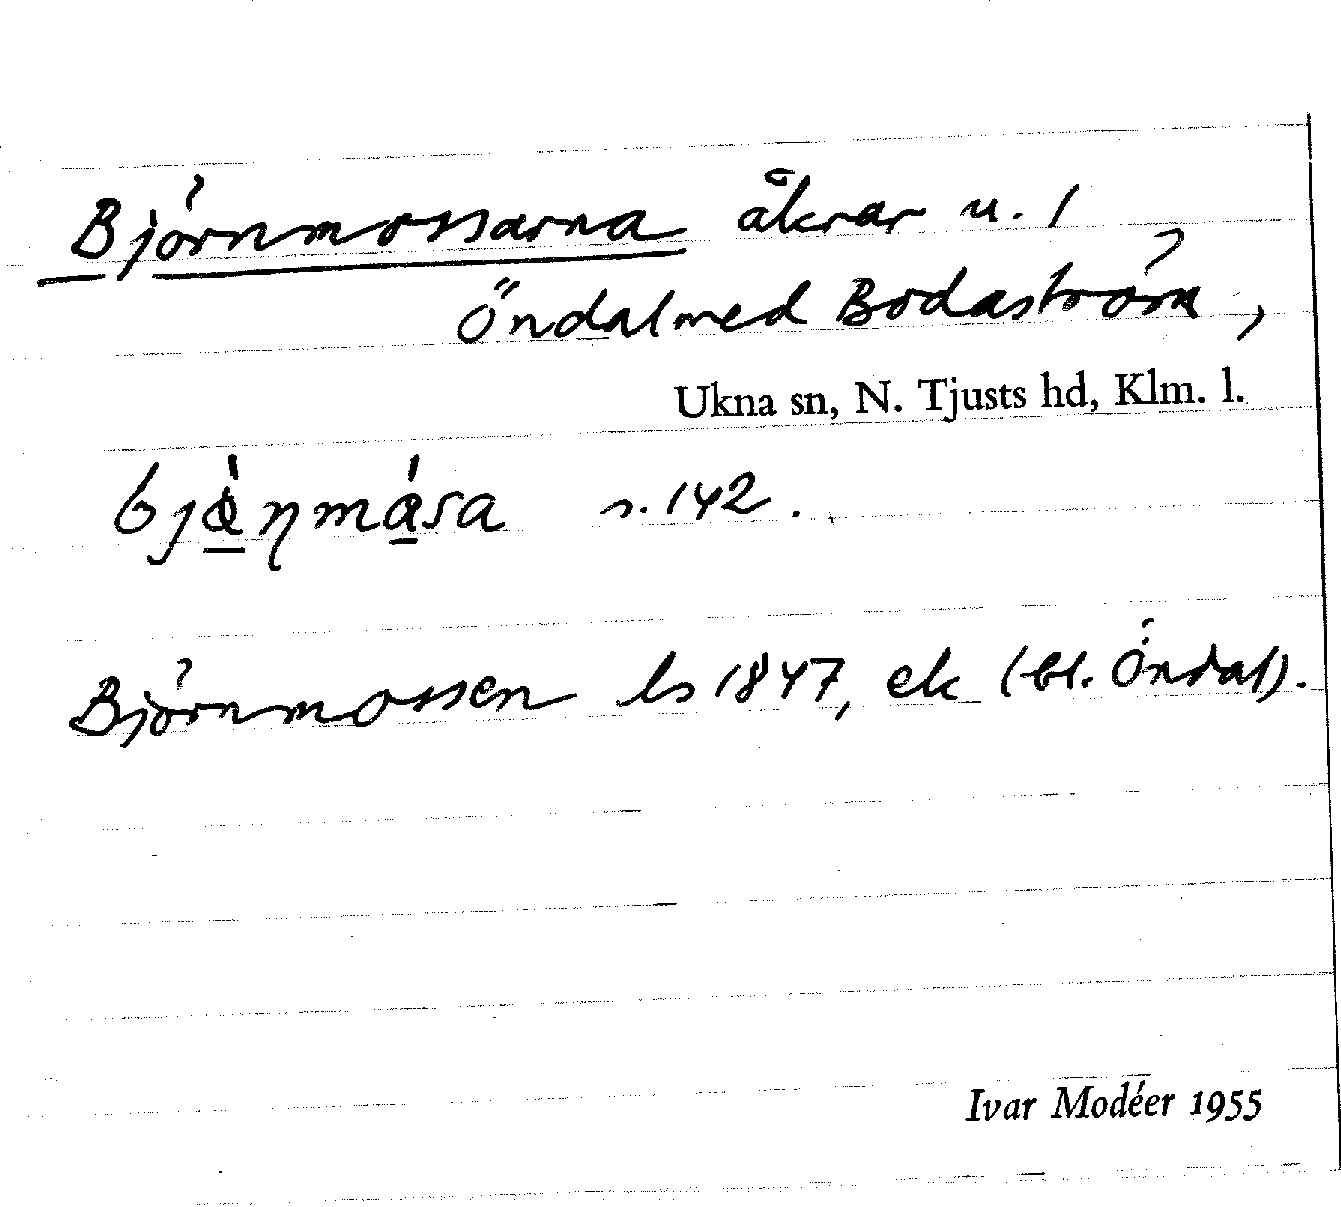 Björnmossarna åkrar u. 1
Öndal med Bodaström,
Ukna sn, N. Tjusts hd, Klm. l.
s. 142.
Björnmossen ls 1847, ek (bl. Öndal).
Ivar Modéer 1955